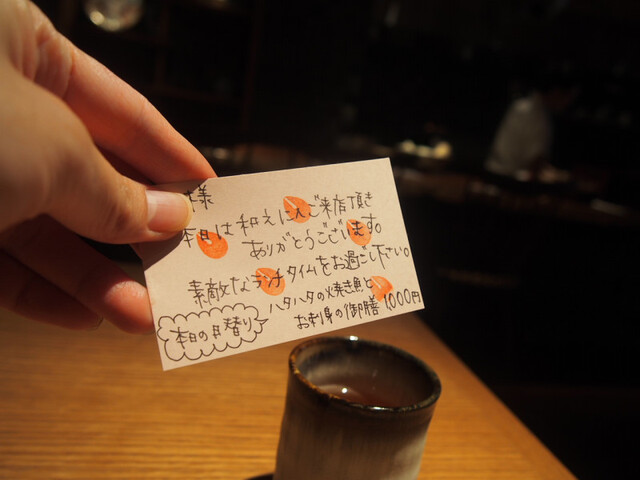 様
本日は和えにご来店頂き
ありがとうございます。
素敵なランチタイムをお過ごし下さい。
本日の日替り
ハタハタの焼き魚と
お刺身の御膳 1,000円